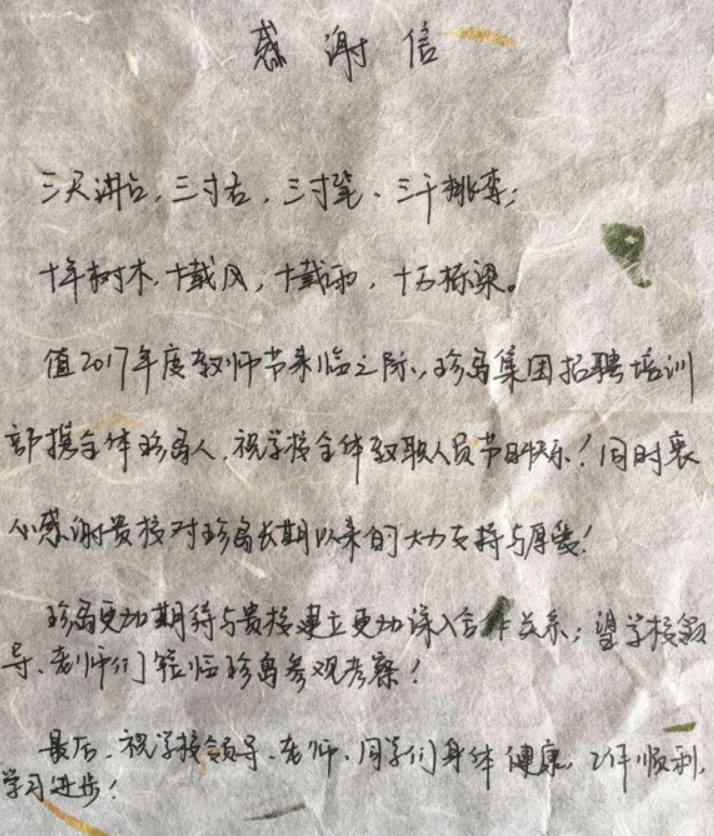 感谢信
三尺讲台,三寸舌,三寸笔、三千桃李;
十年树木,十载风,十载雨,十万栋梁。
值2017年度教师节来临之际,珍岛集团招聘培训
部携全体珍岛人,祝学校全体教职人员节日快乐!同时衷
心感谢贵校对珍岛长期以来的大力支持与厚爱!
珍岛更加期待与贵校建立更加深入合作关系;望学校领
导、老师们莅临珍岛参观考察!
最后,祝学校领导、老师、同学们身体健康,工作顺利,
学习进步!